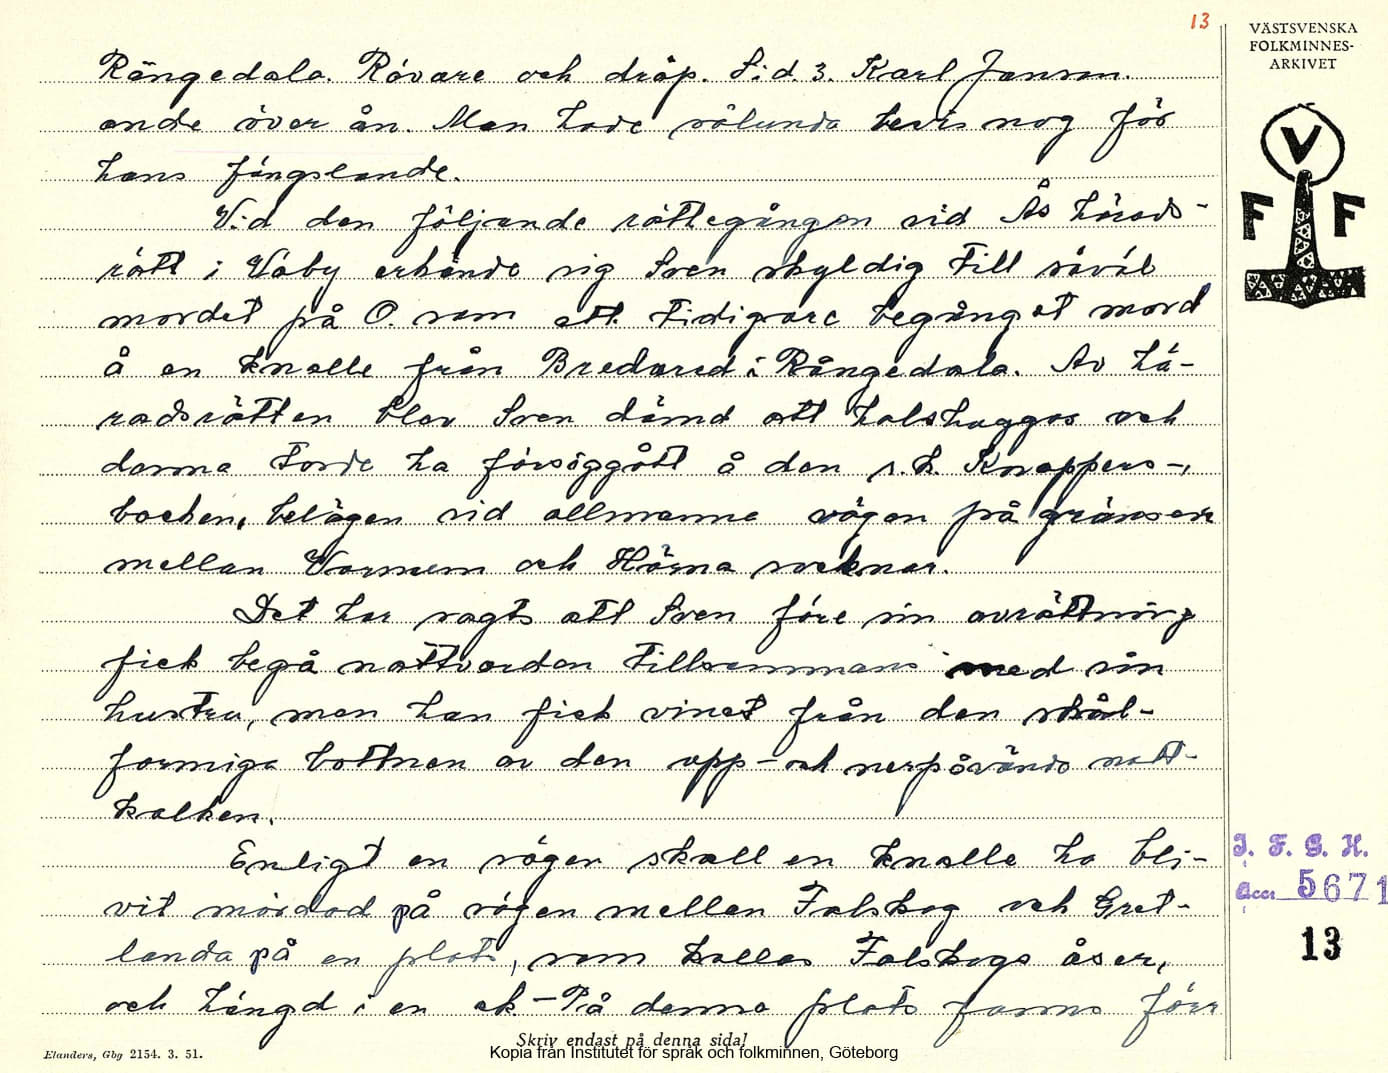 13
VÄSTSVENSKA
FOLKMINNES-
ARKIVET
Rångedala. Rövare och dråp. Sid. 3. Karl Janson.
ande över ån. Man hade sålunda bevis nog för
hans fängslande.
Vid den följande rättegången vid Ås härads-
rätt i Väby erkände sig Sven skyldig till såväl
mordet på O. som ett tidigare begånget mord
å en knalle från Bredared i Rångedala. Av hä-
radsrätten blev Sven dömd att halshuggas och
denna torde ha försiggått å den s.k. Knappers-
backen, belägen vid allmänna vägen på gränsen
mellan Varnum och Härna socknar.
Det har sagts att Sven före sin avrättning
fick begå nattvarden tillsammans med sin
hustru, men han fick vinet från den skål-
formiga bottnen av den upp- och nerpåvända natt-
kalken.
Enligt en sägen skall en knalle ha bli-
vit mördad på vägen mellan Falskog och Gret-
landa på en plats, som kallas Falskogs åsen,
och hängd i en ek - På denna plats fanns förr
V
F F
I. F. G. H.
Acc. 5671
13
Skriv endast på denna sida!
Elanders, Gbg 2154. 3. 51.
Kopia från Institutet för språk och folkminnen, Göteborg